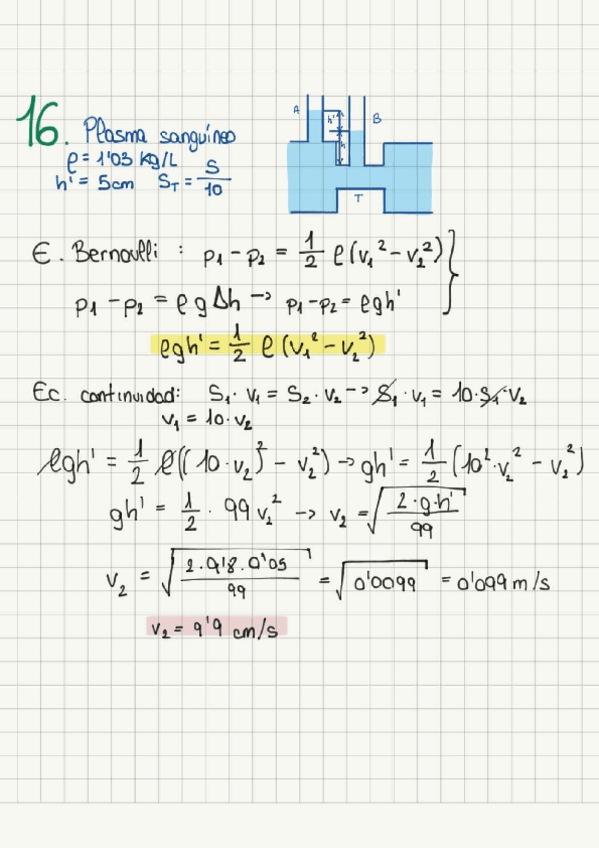 16. Plasma sanguíneo
ρ = 1'03 kg/L
h' = 5cm S_T = S/10
A h' h B T
E. Bernoulli : p₁ - p₂ = 1/2 ρ (v₁² - v₂²)
p₁ - p₂ = ρ g Δh -> p₁ - p₂ = ρgh'
ρgh' = 1/2 ρ (v₁² - v₂²)
Ec. continuidad: S₁ · v₁ = S₂ · v₂ -> S₁ · v₁ = 10 · S₁ · v₂
v₁ = 10 · v₂
ρgh' = 1/2 ρ((10 · v₂)² - v₂²) -> gh' = 1/2 (10² · v₂² - v₂²)
gh' = 1/2 · 99 v₂² -> v₂ = √(2 · g · h'/99)
v₂ = √(2 · 9'8 · 0'05/99) = √0'0099 = 0'099 m/s
v₂ = 9'9 cm/s